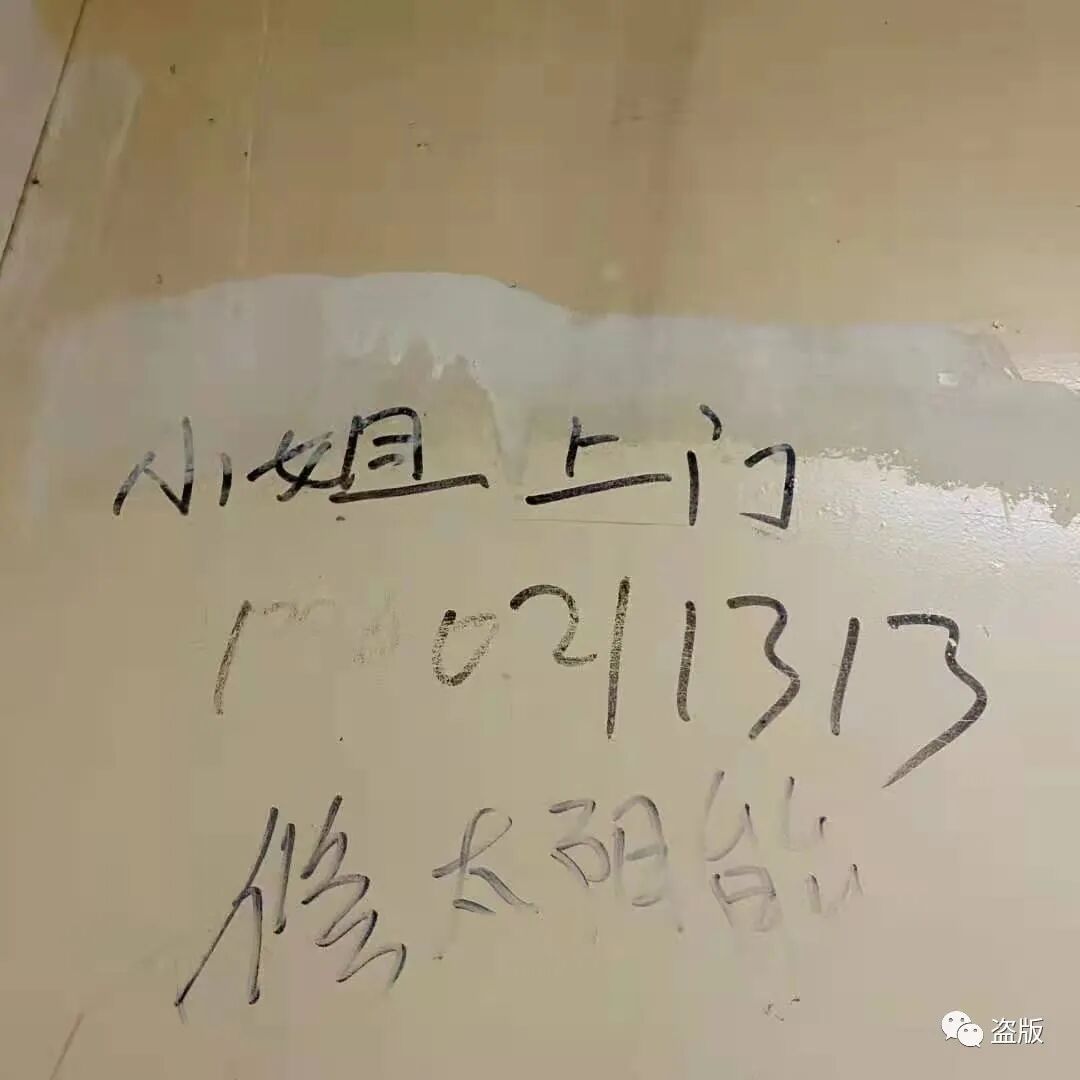 小姐上门
0211313
修太阳能
盗版